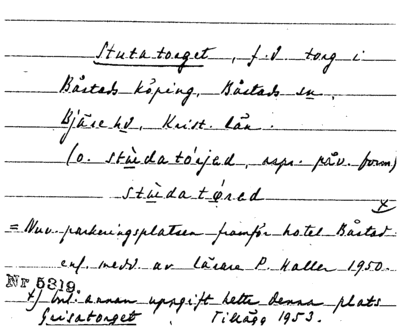 Stutatorget, f.d torg i
Båstads köping, Båstads sn,
Bjäre hd, Krist. län.
(o. stùdatórjed, resp. förv. form)
stùdatǫred
x)
= Nuv. parkeringsplatsen framför hotel Båstad
enl. medd av lärare P. Haller 1950.
Nr 5319.
x) Enl. annan uppgift hette denna plats
Grisatorget. Tillägg 1953.